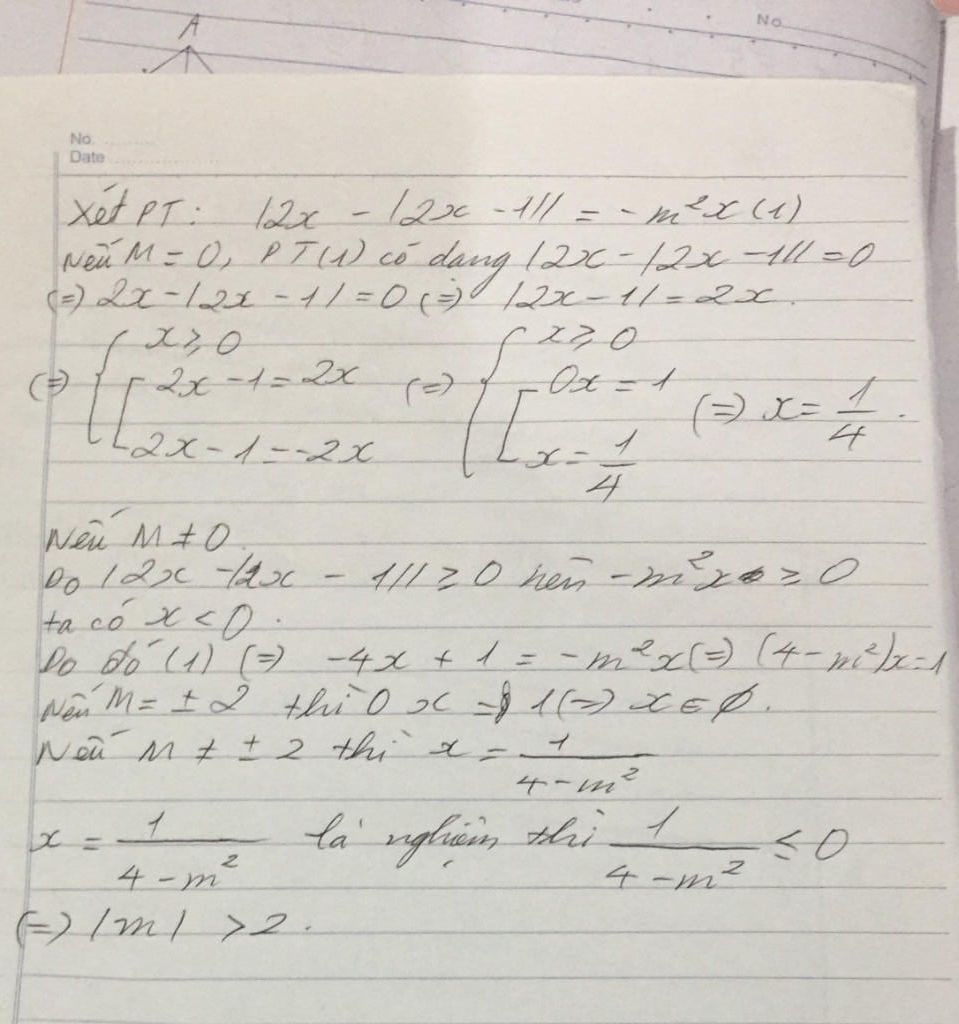 A
No
No.
Date
Xét PT: |2x - |2x - 1|| = -m²x (1)
Nếu M = 0, PT(1) có dạng |2x - |2x - 1|| = 0
(=) 2x - |2x - 1| = 0 (=) |2x - 1| = 2x.
(=) { x ≥ 0 [ 2x - 1 = 2x 2x - 1 = -2x (=) { x ≥ 0 [ 0x = 1 x = 1/4 (=) x = 1/4.
Nếu M ≠ 0.
Do |2x - |2x - 1|| ≥ 0 nên -m²x ≥ 0
ta có x < 0.
Do đó (1) (=) -4x + 1 = -m²x (=) (4 - m²)x = 1
Nếu M = ± 2 thì 0x = 1 (=) x ∈ ∅.
Nếu M ≠ ± 2 thì x = 1/(4 - m²)
x = 1/(4 - m²) là nghiệm thì 1/(4 - m²) ≤ 0
(=) |m| > 2.